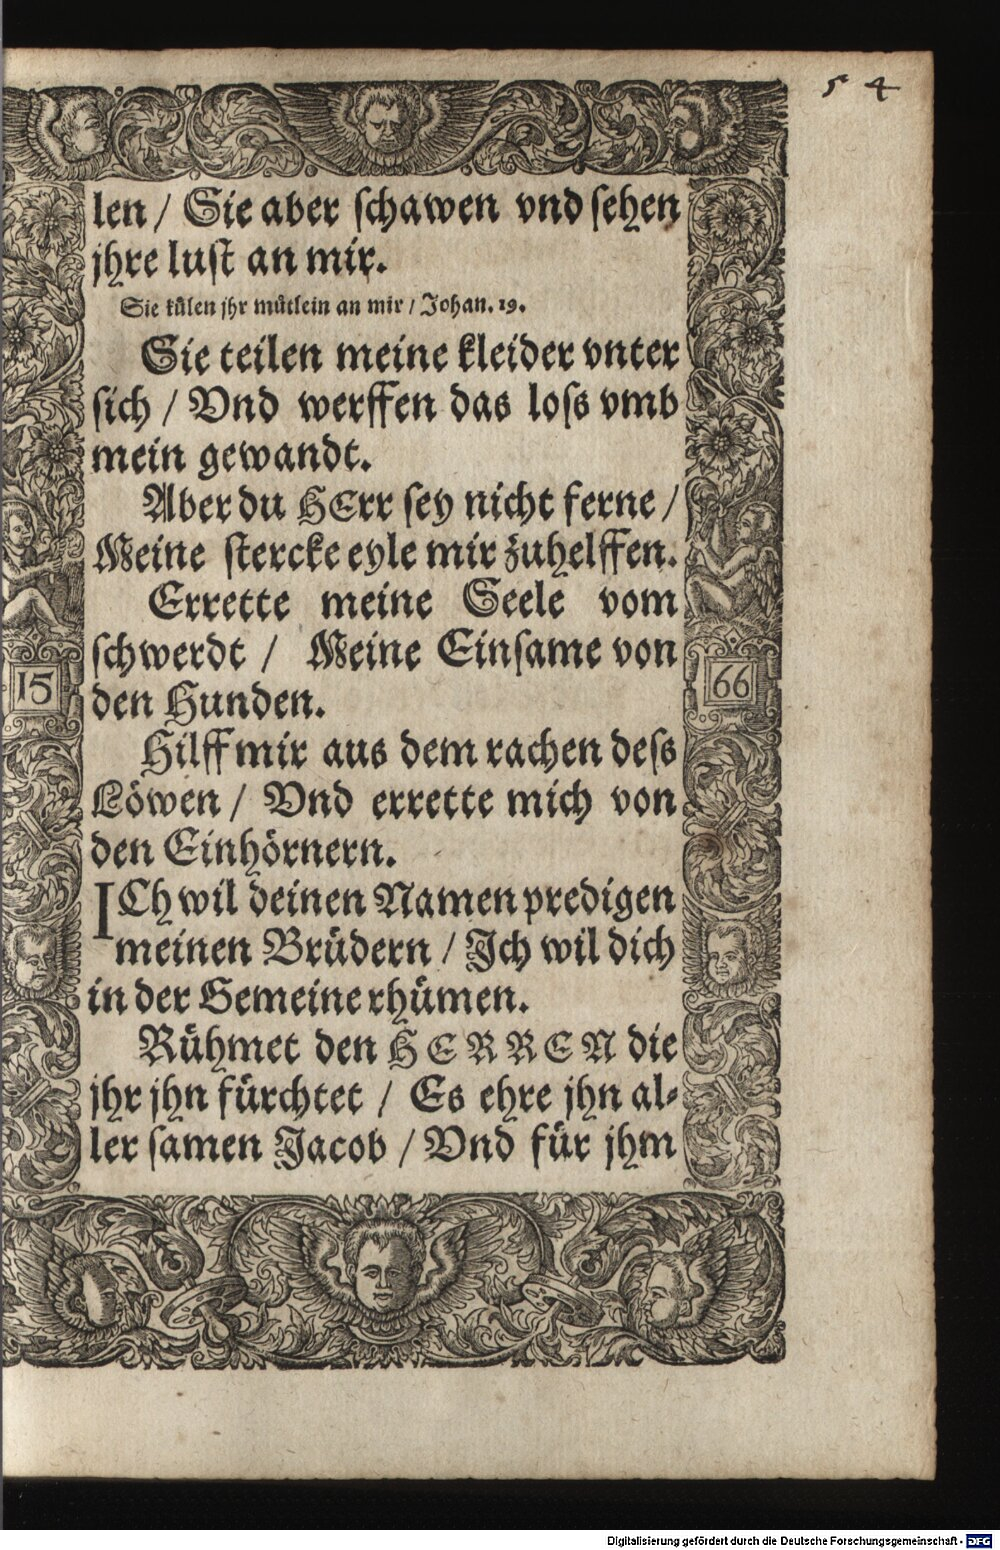 5 4
len / Sie aber schawen vnd sehen
jhre lust an mir.
Sie külen jhr mütlein an mir / Johan. 19.
Sie teilen meine kleider vnter
sich / Vnd werffen das loss vmb
mein gewandt.
Aber du HErr sey nicht ferne /
Meine stercke eyle mir zuhelffen.
Errette meine Seele vom
schwerdt / Meine Einsame von
den Hunden.
15 66
Hilff mir aus dem rachen dess
Löwen / Vnd errette mich von
den Einhörnern.
ICh wil deinen Namen predigen
meinen Brüdern / Jch wil dich
in der Gemeine rhümen.
Rühmet den HERREN die
jhr jhn fürchtet / Es ehre jhn al-
ler samen Jacob / Vnd für jhm
Digitalisierung gefördert durch die Deutsche Forschungsgemeinschaft - DFG